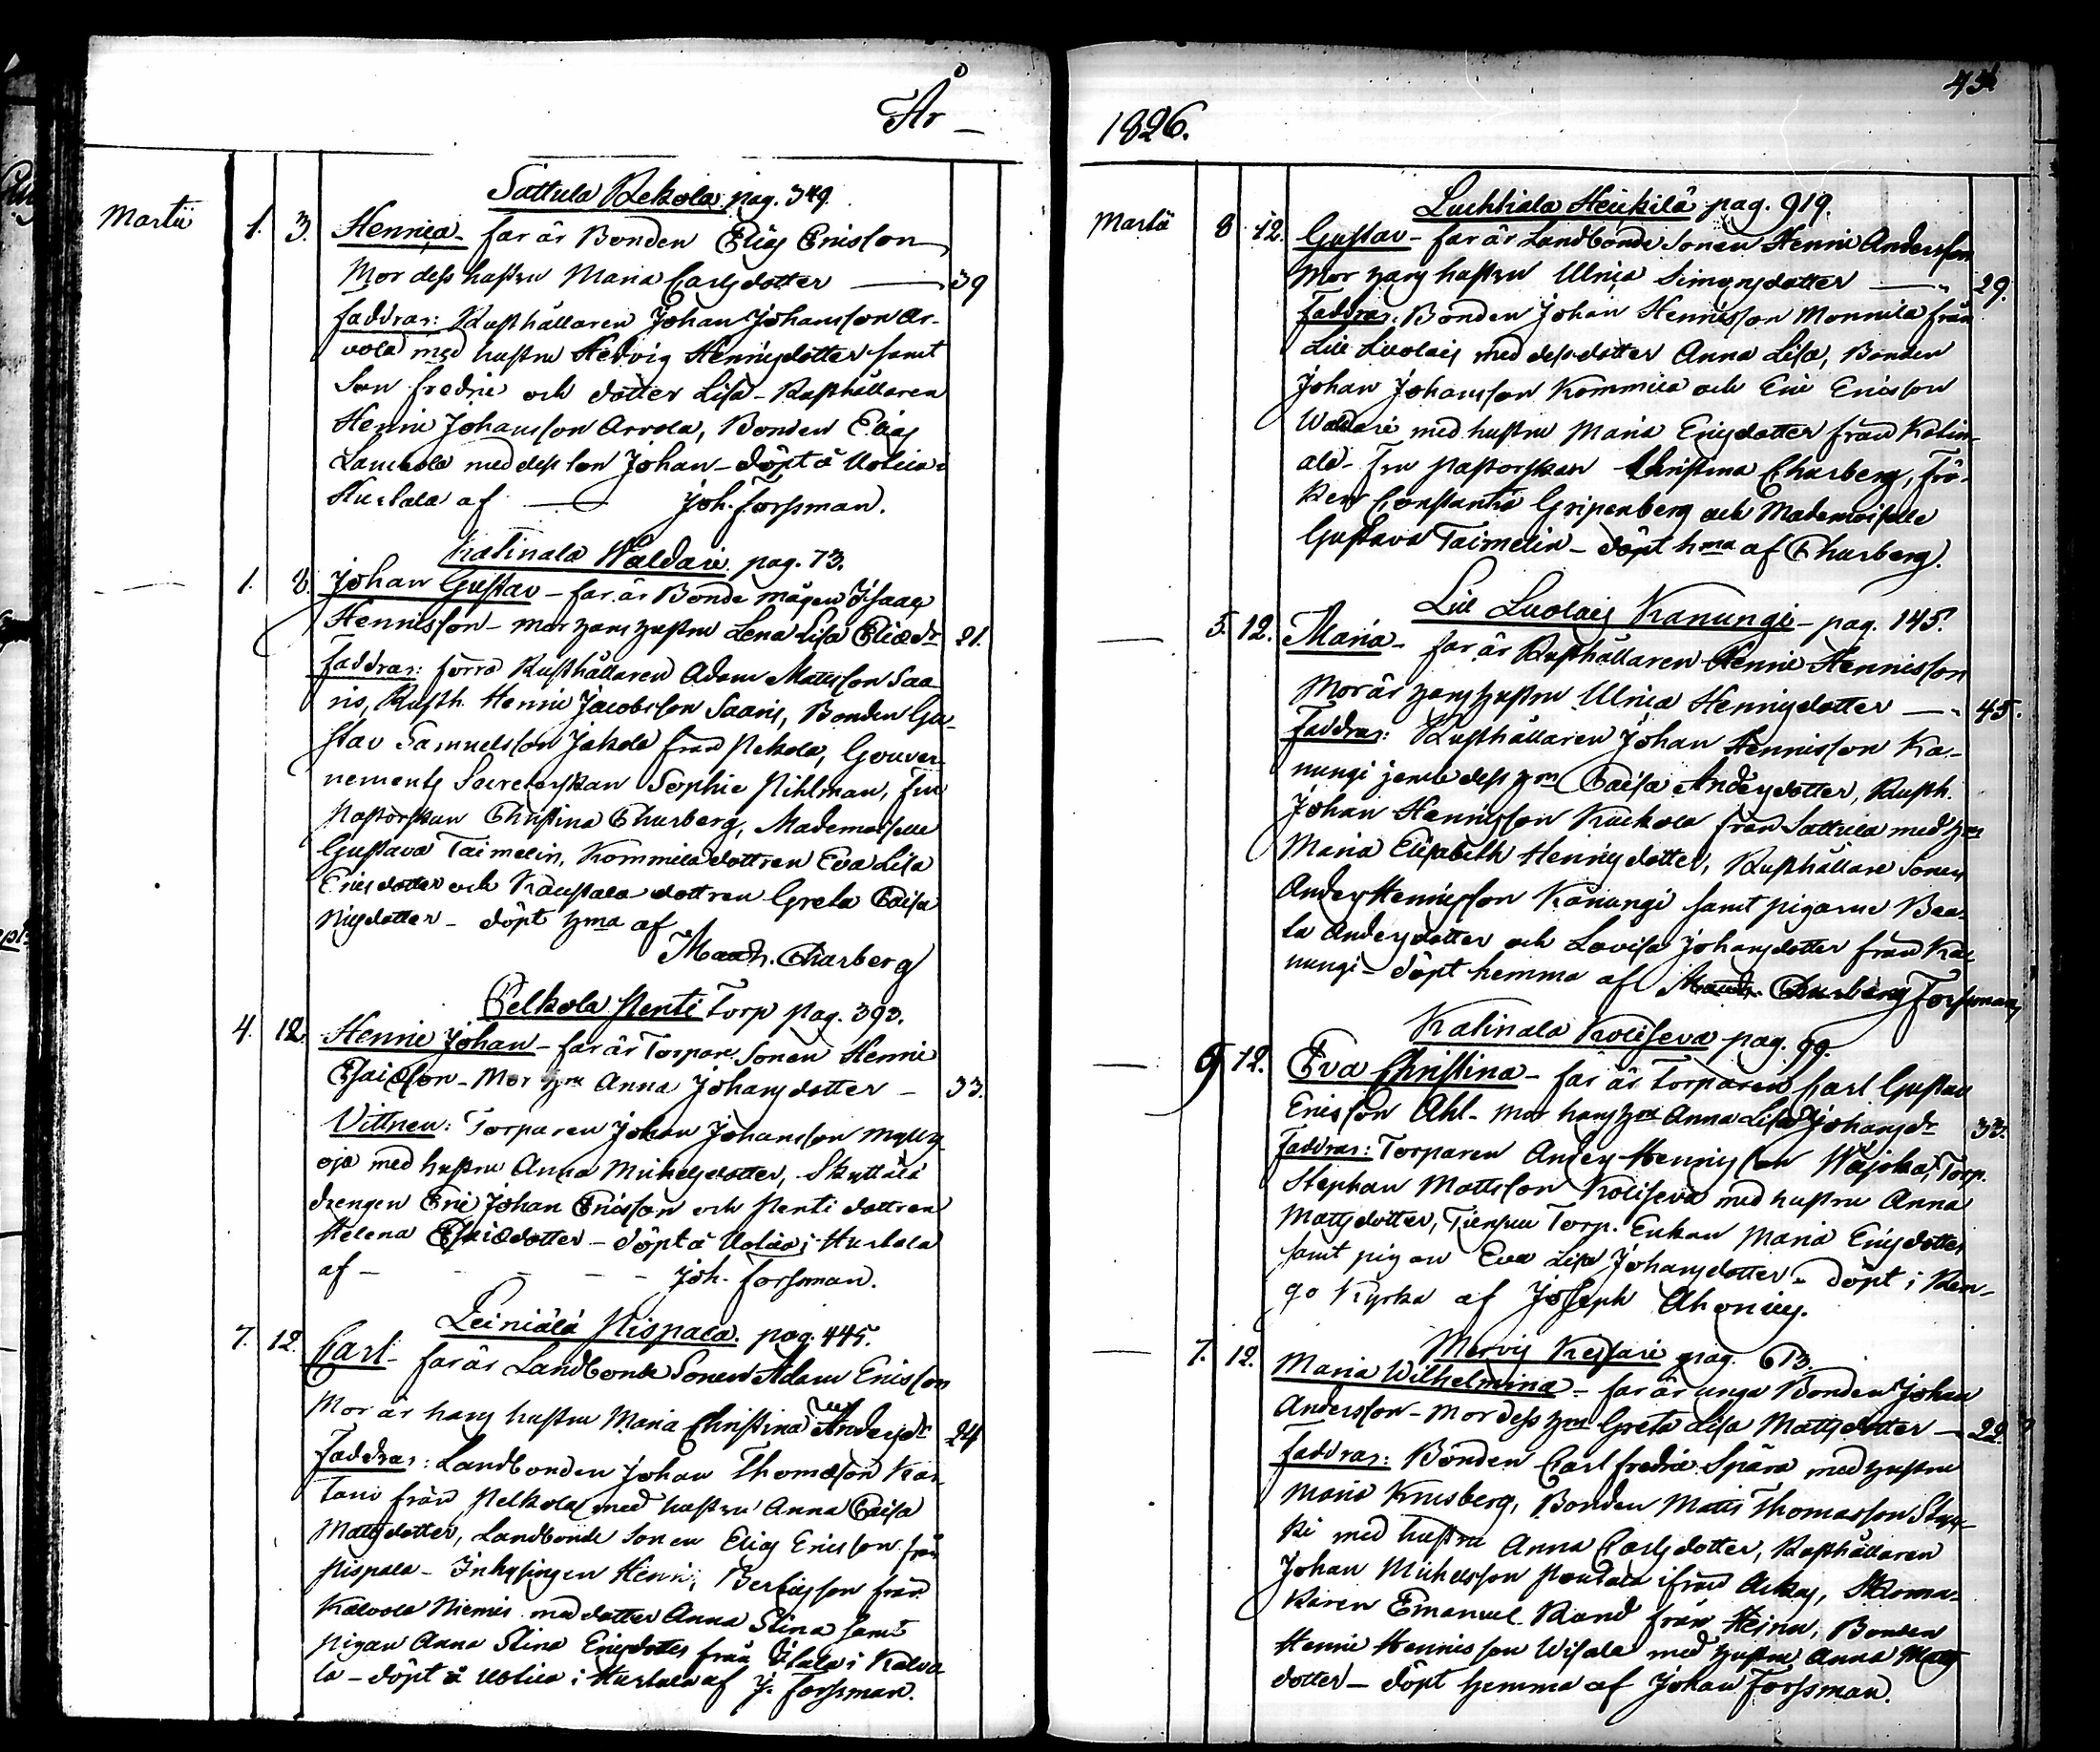 År —
Sattula Rekola pag. 349.
Martii 1. 3. Henrica - far är Bonden Elias Ericsson
Mor dess hustru Maria Carlsdotter — 39
Faddrar: Rusthållaren Johan Johansson Ar-
vola med hustru Hedvig Henricsdotter samt
Son Fredric och dotter Lisa - Rusthållaren
Henric Johansson Arvola, Bonden Elias
med dess son Johan - döpt å
af — Joh. Forssman.
Katinala Waldari pag. 73.
— 1. 8. Johan Gustav - far är Bonde mågen Isaac
Henricsson - mor hans hustru Lena Lisa 21.
Faddrar: förra Rusthållaren Adam Mattsson Saa-
ris, Rusth. Henric Jacobsson Saaris, Bonden Gu-
stav Samuelsson Jakola från Pekola, Gouver-
nements Secreterskan Sophie Pihlman, Fru
Pastorskan Christina Churberg, Mademoiselle
Gustava Taimelin, Kommila dottren Eva Lisa
Ericsdotter och dottren Greta Caisa
döpt hma af
Churberg
Pelkola Penti Torp pag. 393.
4. 12. Henric Johan - far är Torpare Sonen Henric
Esaiæson - Mor hm Anna Johansdotter — 33.
Vittnen: Torparen Johan Johansson Mylly-
oja med hustru Anna Michelsdotter, Skyttälä
drengen Eric Johan Ericsson och Penti dottren
Helena Esaiædotter - döpt å
af — — — — Joh. Forssman.
Leiniälä Nispala pag. 445.
7. 12. Carl - far är Landbonde Sonen Adam Ericsson
Mor är hans hustru Maria Christina Andersdr 24
Faddrar: Landbonden Johan Thomæson
från Pelkola med hustru Anna Caisa
Mattsdotter, Landbonde sonen Elias Ericsson från
Nispala - Inhysingen Henric från
Kalvola Niemis med dotter Anna Stina samt
pigan Anna Stina Ericsdotter från i Kalvo-
la - döpt å af J. Forssman.
1826.
Luhtiala Heikilä pag. 919.
Martii 8 12. Gustav - far är Landbonde Sonen Henric Andersson
Mor hans hustru Ulrica Simonsdotter — 29.
Faddrar: Bonden Johan Henricsson Monnila från
Lill Luolais med dess dotter Anna Lisa, Bonden
Johan Johansson Kommila och Eric Ericsson
Waldari med hustru Maria Ericsdotter från Katin-
ala - Fru Pastorskan Christina Churberg, Frö-
ken Constantia Gripenberg och Mademoiselle
Gustava Taimelin - döpt hma af Churberg.
Lill Luolais Kanungi - pag. 145.
— 5. 12. Maria - far är Rusthållaren Henric Henricsson
Mor är hans hustru Ulrica Henricsdotter — 45.
Faddrar: Rusthållaren Johan Henricsson Ka-
nungi jemte dess hm Caisa Andersdotter, Rusth.
Johan Henricsson från Sattula med hm
Maria Elisabeth Henricsdotter, Rusthållare Sonen
Anders Henricsson Kanungi samt pigorne Bea-
ta Andersdotter och Lovisa Johansdotter från Ka-
nungi - döpt hemma af Forssman
Katinala Koliseva pag. 99.
— 9 12. Eva Christina - far är Torparen Carl Gustav
Ericsson Ahl - mor hans hm Anna Lisa Johansdr 33.
Faddrar: Torparen Anders Henricsson Wäjoki, Torp.
Stephan Mattsson Koliseva med hustru Anna
Mattsdotter, Torp. Enkan Maria Ericsdotter
samt pigan Eva Lisa Johansdotter - döpt i Ren-
go Kyrka af Joseph Ahonius.
Mervis Kessari pag. 613.
— 7. 12. Maria Wilhelmina - far är unga Bonden Johan
Andersson - Mor dess hm Greta Lisa Mattsdotter — 22.
Faddrar: Bonden Carl Fredric Spåra med hustru
Maria Krusberg, Bonden Matts Thomasson
med hustru Anna Carlsdotter, Rusthållaren
Johan Michelsson ifrån Skoma-
karen Emanuel Rand från Heinu, Bonden
Henric Henricsson Wisala med hustru Anna Matts
dotter - döpt hemma af Johan Forssman.